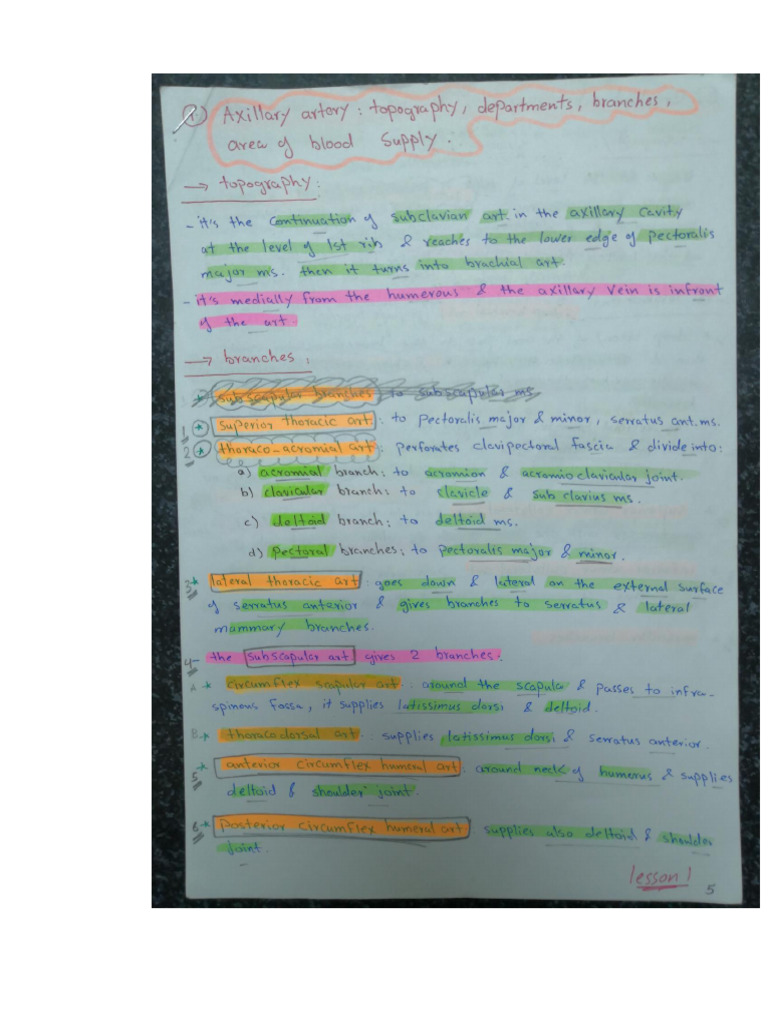 ① Axillary artery: topography, departments, branches,
area of blood supply.
→ topography:
- it's the continuation of subclavian art. in the axillary cavity
at the level of 1st rib & reaches to the lower edge of pectoralis
major ms. then it turns into brachial art.
- it's medially from the humerous & the axillary vein is infront
of the art.
→ branches:
* subscapular branches: to subscapular ms.
1 * superior thoracic art.: to pectoralis major & minor, serratus ant. ms.
2 * thoraco-acromial art: perforates clavipectoral fascia & divide into:
a) acromial branch: to acromion & acromio clavicular joint.
b) clavicular branch: to clavicle & sub clavius ms.
c) deltoid branch: to deltoid ms.
d) pectoral branches: to pectoralis major & minor.
3* lateral thoracic art: goes down & lateral on the external surface
of serratus anterior & gives branches to serratus & lateral
mammary branches.
4- the subscapular art gives 2 branches.
A * circumflex scapular art.: around the scapula & passes to infra-
spinous fossa, it supplies latissimus dorsi & deltoid.
B. * thoracodorsal art.: supplies latissimus dorsi & serratus anterior.
5 * anterior circumflex humeral art. around neck of humerus & supplies
deltoid & shoulder joint.
6 * posterior circumflex humeral art supplies also deltoid & shoulder
joint.
lesson 1
5